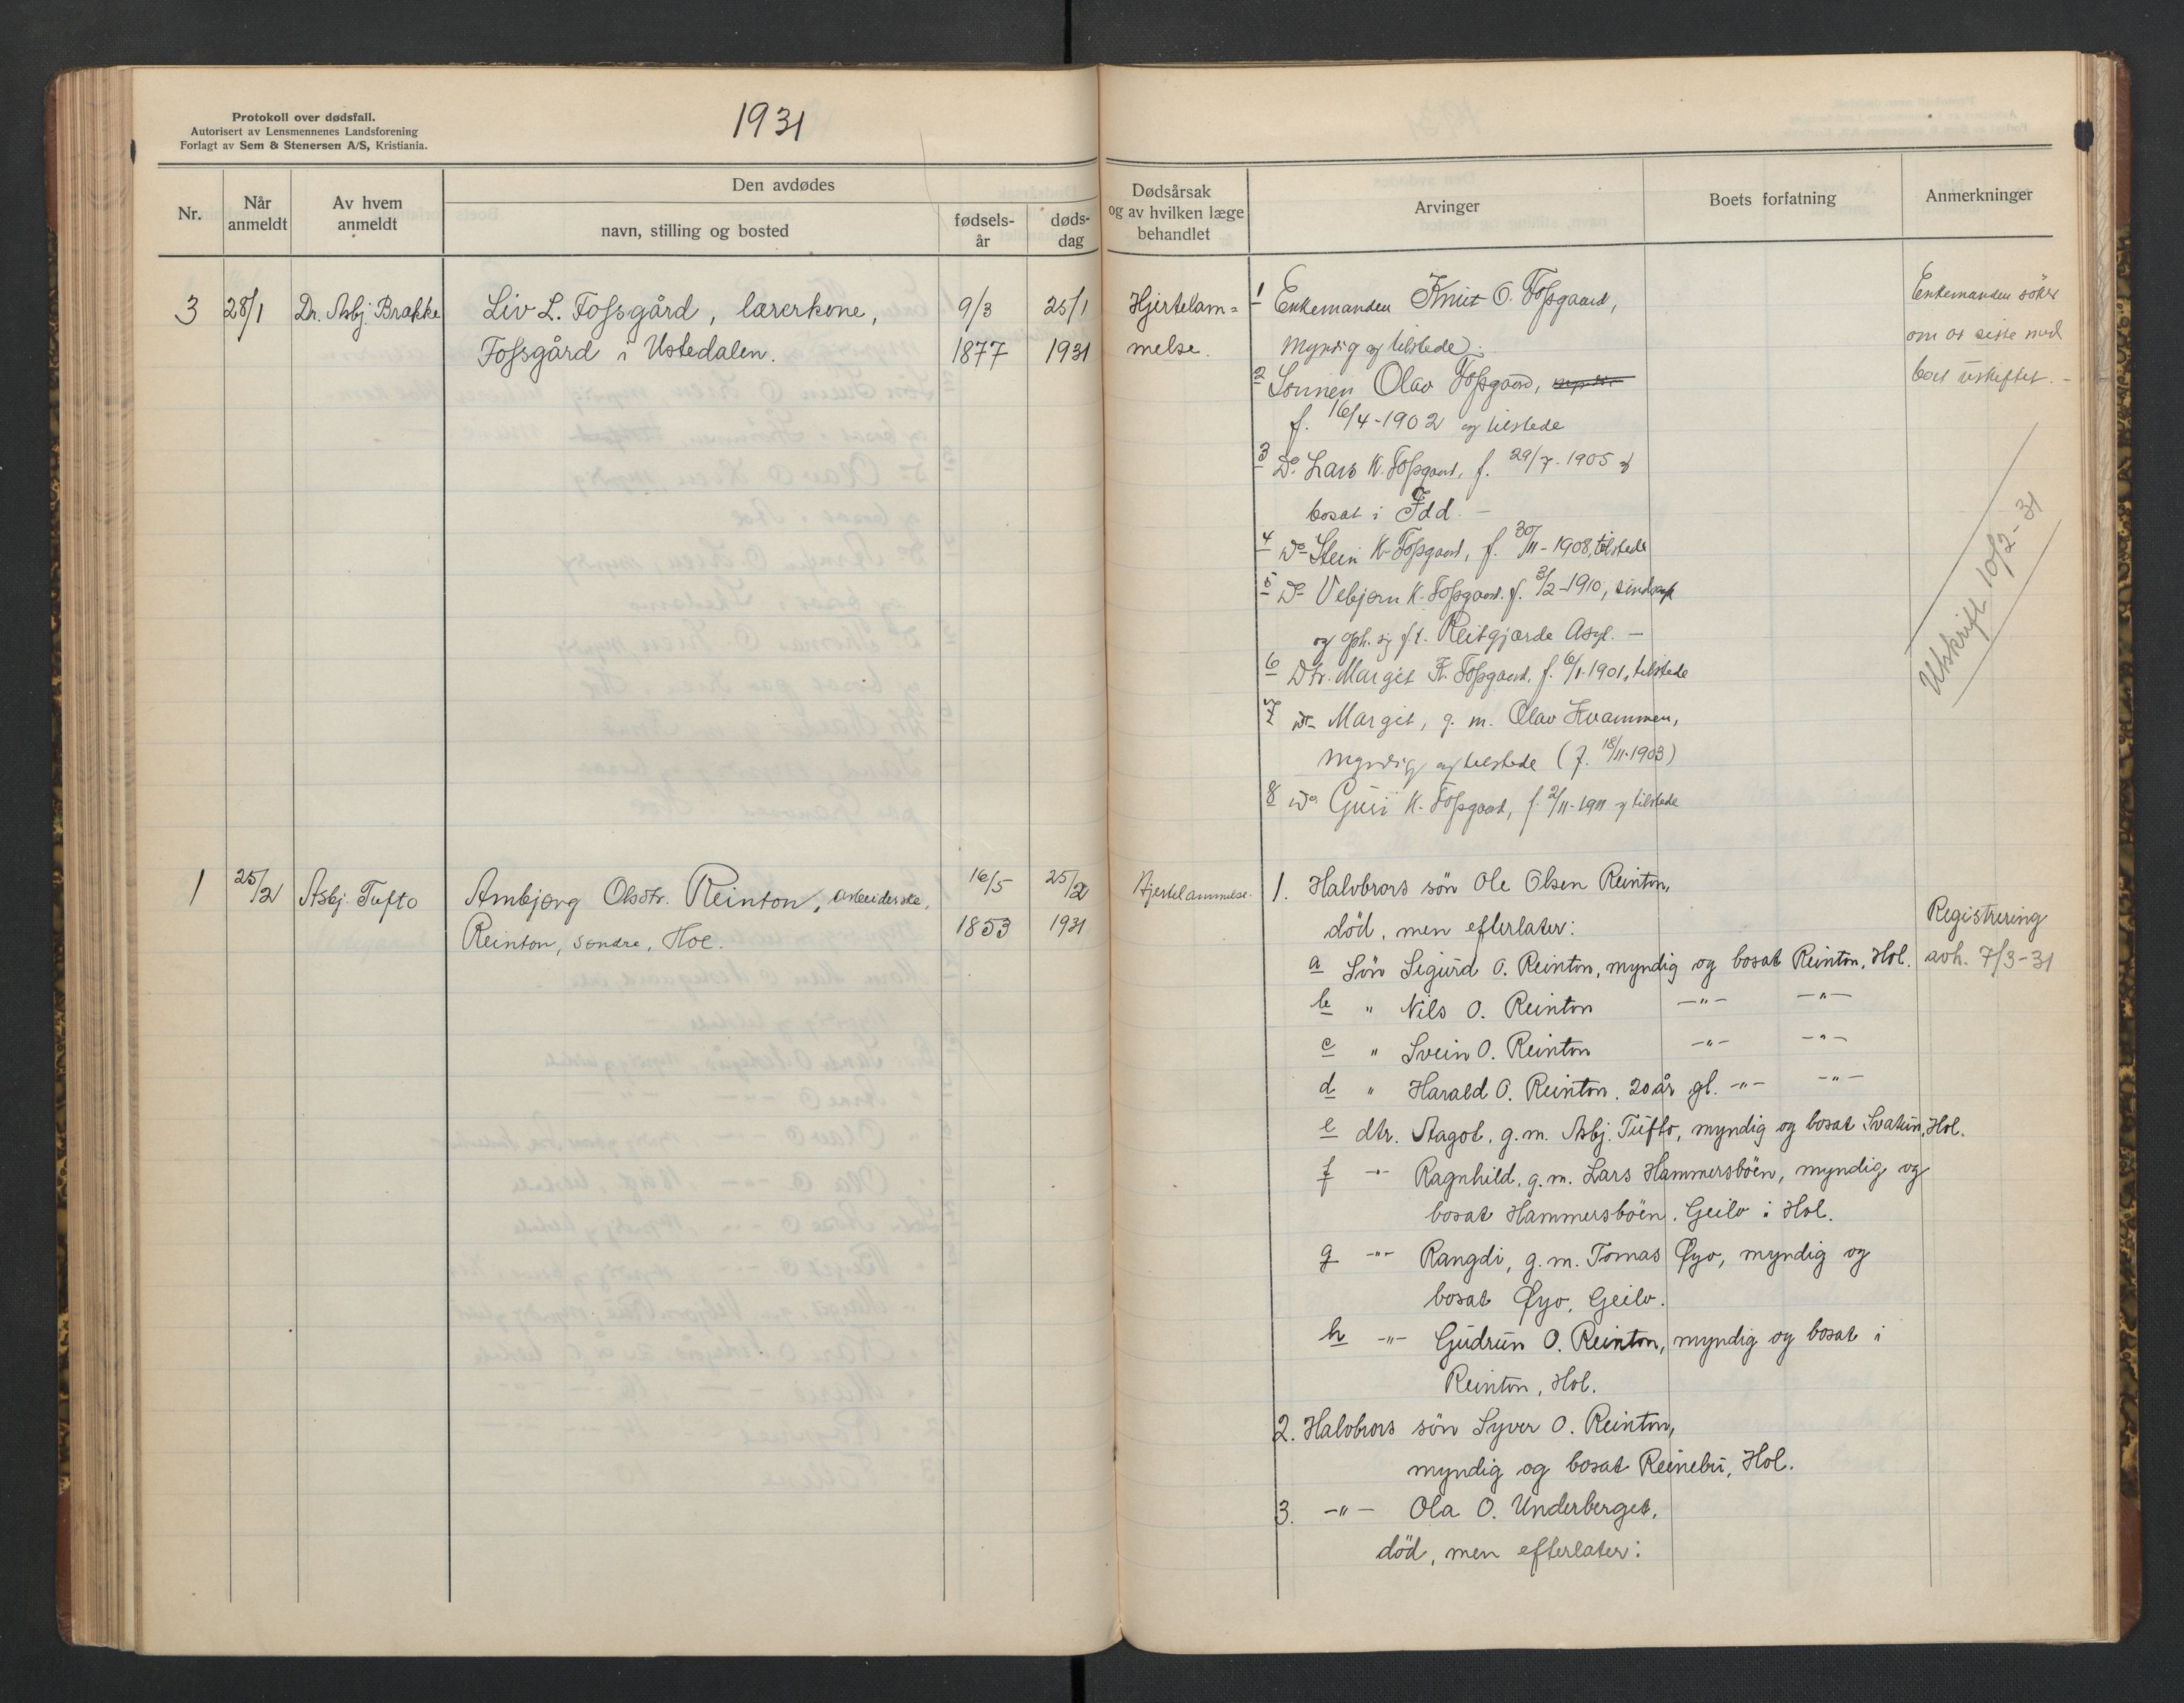 Protokoll over dødsfall.
Autorisert av Lensmennenes Landsforening
Forlagt av Sem & Stenersen A/S, Kristiania.
1931
Nr.
Når anmeldt
Av hvem anmeldt
Den avdødes
navn, stilling og bosted
fødsels-år
døds-dag
Dødsårsak og av hvilken læge behandlet
Arvinger
Boets forfatning
Anmerkninger
3
28/1
Dr. Asbj. Brakke
Liv L. Fossgård, lærerkone,
Fossgård i Ustedalen.
9/3
1877
25/1
1931
Hjertelam=
melse.
1 Enkemanden Knut O. Fossgaard,
myndig og tilstede.
2 Sønnen Olav Fossgaard,
f. 16/4-1902 og tilstede
3 Do. Lars K. Fossgaard, f. 29/7-1905 og
bosat i Idd. -
4 Do Stein K. Fossgaard, f. 30/11-1908, tilstede
5 Do Vebjørn K. Fossgaard. f. 3/2-1910, sindssyk
og oph. sig f.t. Reitgjærde Asyl. -
6 Dtr. Margit K. Fossgaard, f. 6/1-1901, tilstede
7 do- Margit, g. m. Olav Hvammen,
myndig og tilstede (f. 18/11-1903)
8 do. Guri K. Fossgaard, f. 2/11-1911 og tilstede
Enkemanden söker
om at sitte med
boet uskiftet. -
Utskrift 10/2-31
1
25/2
Asbj. Tufto
Ambjørg Olsdtr. Reinton, arbeiderske,
Reinton, søndre, Hol.
16/5
1853
25/2
1931
Hjertelammelse.
1. Halvbrors sön Ole Olsen Reinton,
död, men efterlater:
a Sön Sigurd O. Reinton, myndig og bosat Reinton, Hol.
b " Nils O. Reinton -"- -"-
c " Svein O. Reinton -"- -"-
d " Harald O. Reinton. 20 år gl. -"- -"-
e dtr. Aagot, g.m. Asbj. Tufto, myndig og bosat Svatun, Hol.
f -"- Ragnhild, g.m. Lars Hammersböen, myndig og
bosat Hammersböen, Geilo i Hol.
g -"- Rangdi, g.m. Tomas Øyo, myndig og
bosat Øyo, Geilo.
h -"- Gudrun O. Reinton, myndig og bosat i
Reinton, Hol.
2. Halvbrors sön Syver O. Reinton,
myndig og bosat Reinebu, Hol.
3. -"- Ola O. Underberget,
död, men efterlater:
Registrering
avh. 7/3-31